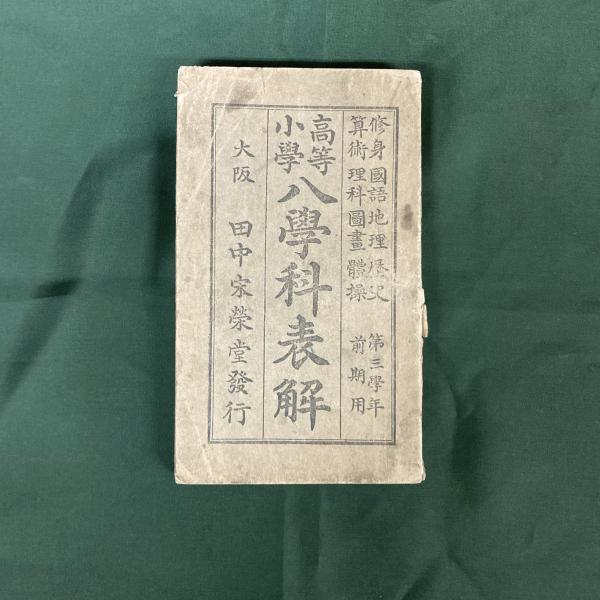 修身國語地理歷史
算術理科圖畫體操
第三學年
前期用
高等
小學
八學科表解
大阪 田中宋榮堂發行